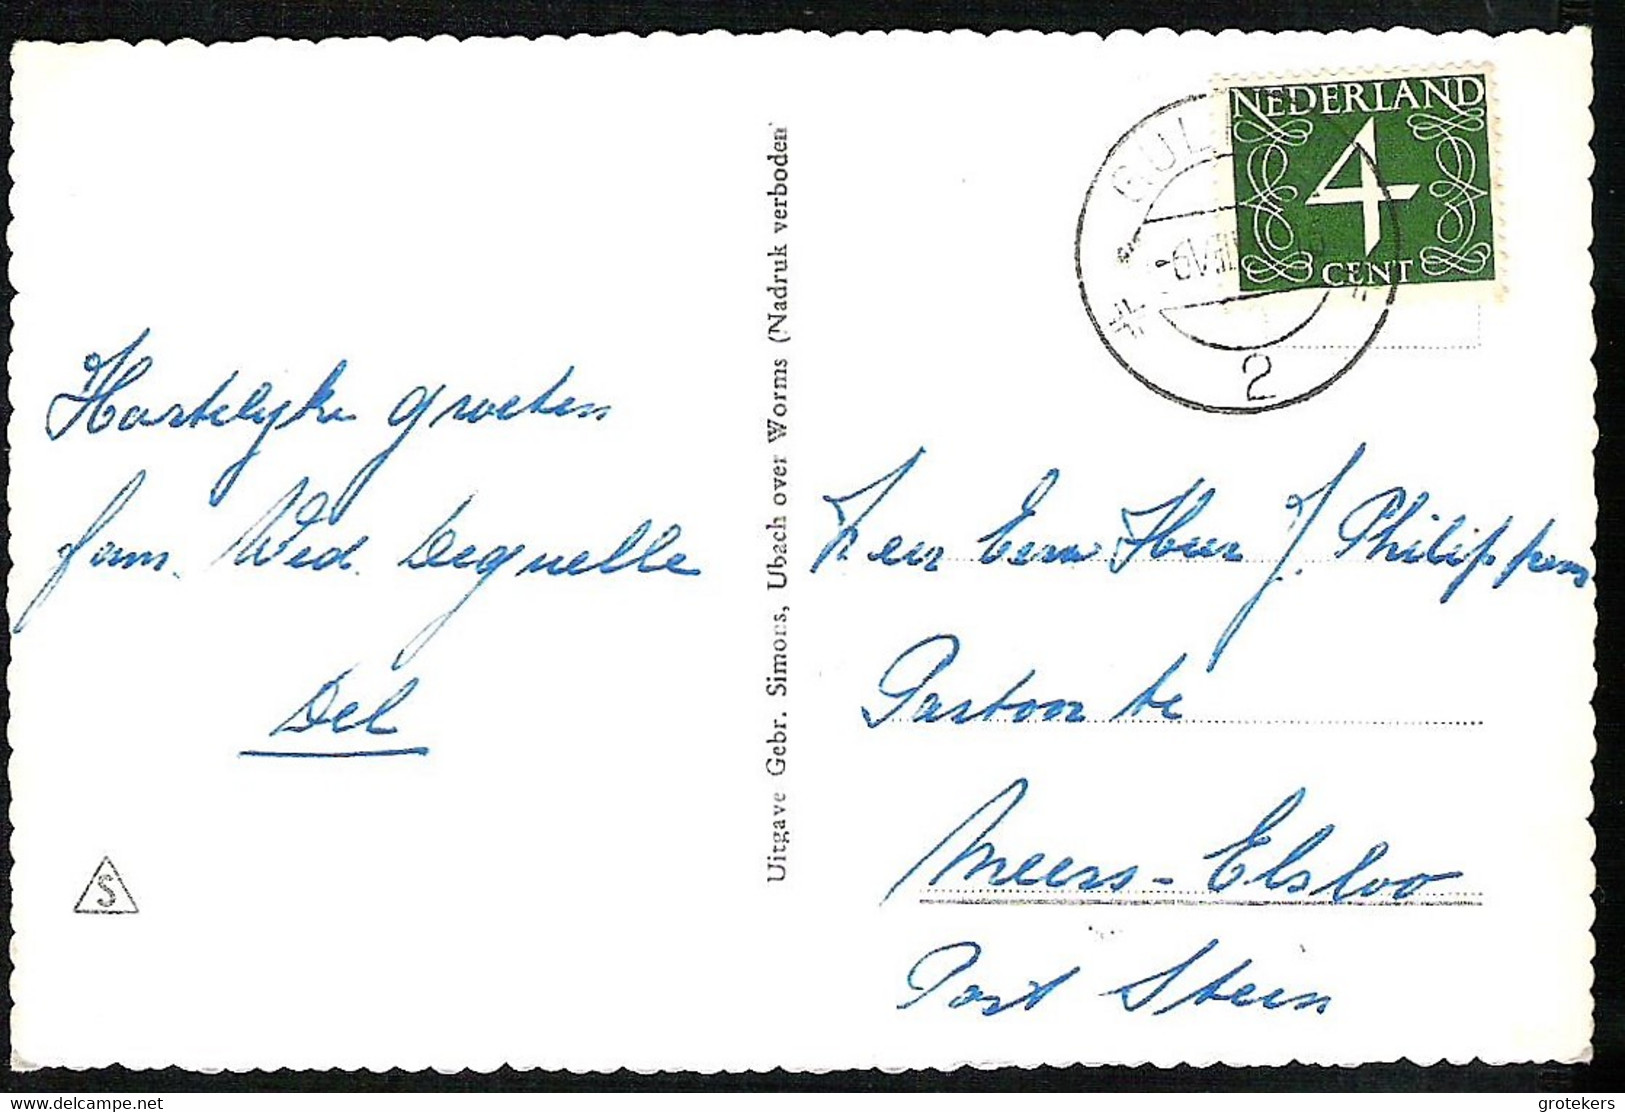 Hartelijke groeten
fam. Wed. Dequelle
Del
S
Uitgave Gebr. Simons, Ubach over Worms (Nadruk verboden)
NEDERLAND
4
CENT
GUL
2
Zeer Eerw Heer J. Philippen
Pastoor te
Meers-Elsloo
Post Stein
www.delcampe.net
grotekers